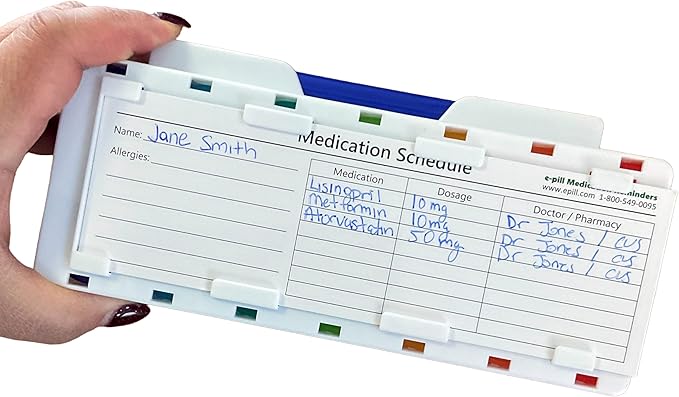 Medication Schedule
e-pill Medication Reminders
www.epill.com 1-800-549-0095
Name: Jane Smith
Allergies:
Medication Dosage Doctor / Pharmacy
Lisinopril 10 mg Dr Jones / CVS
metformin 10 mg Dr Jones / CVS
Atorvastatin 50 mg Dr Jones / CVS